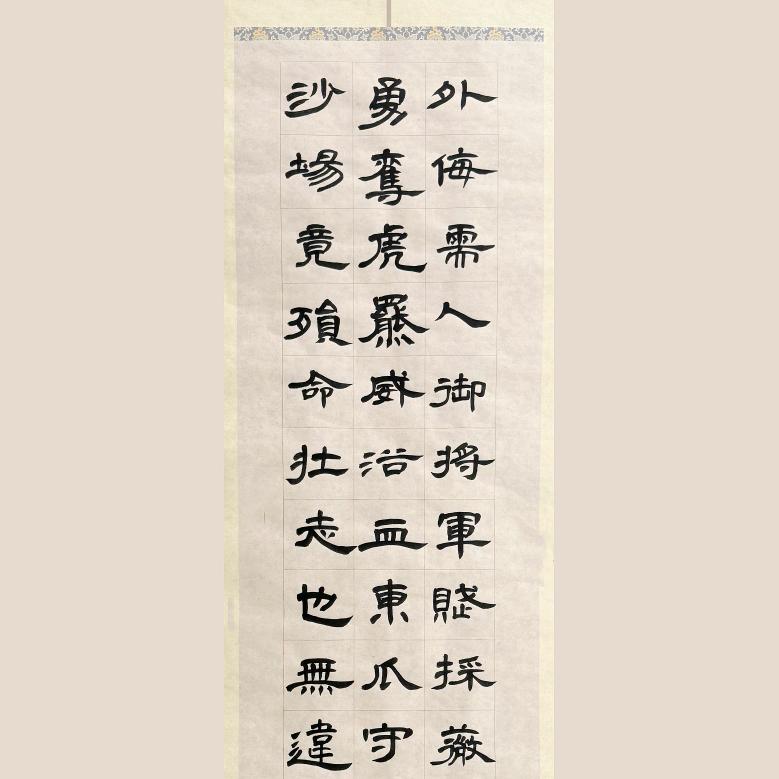 外侮需人御將軍賦採薇
勇奪虎羆威浴血東瓜守
沙場竟殞命壯志也無違